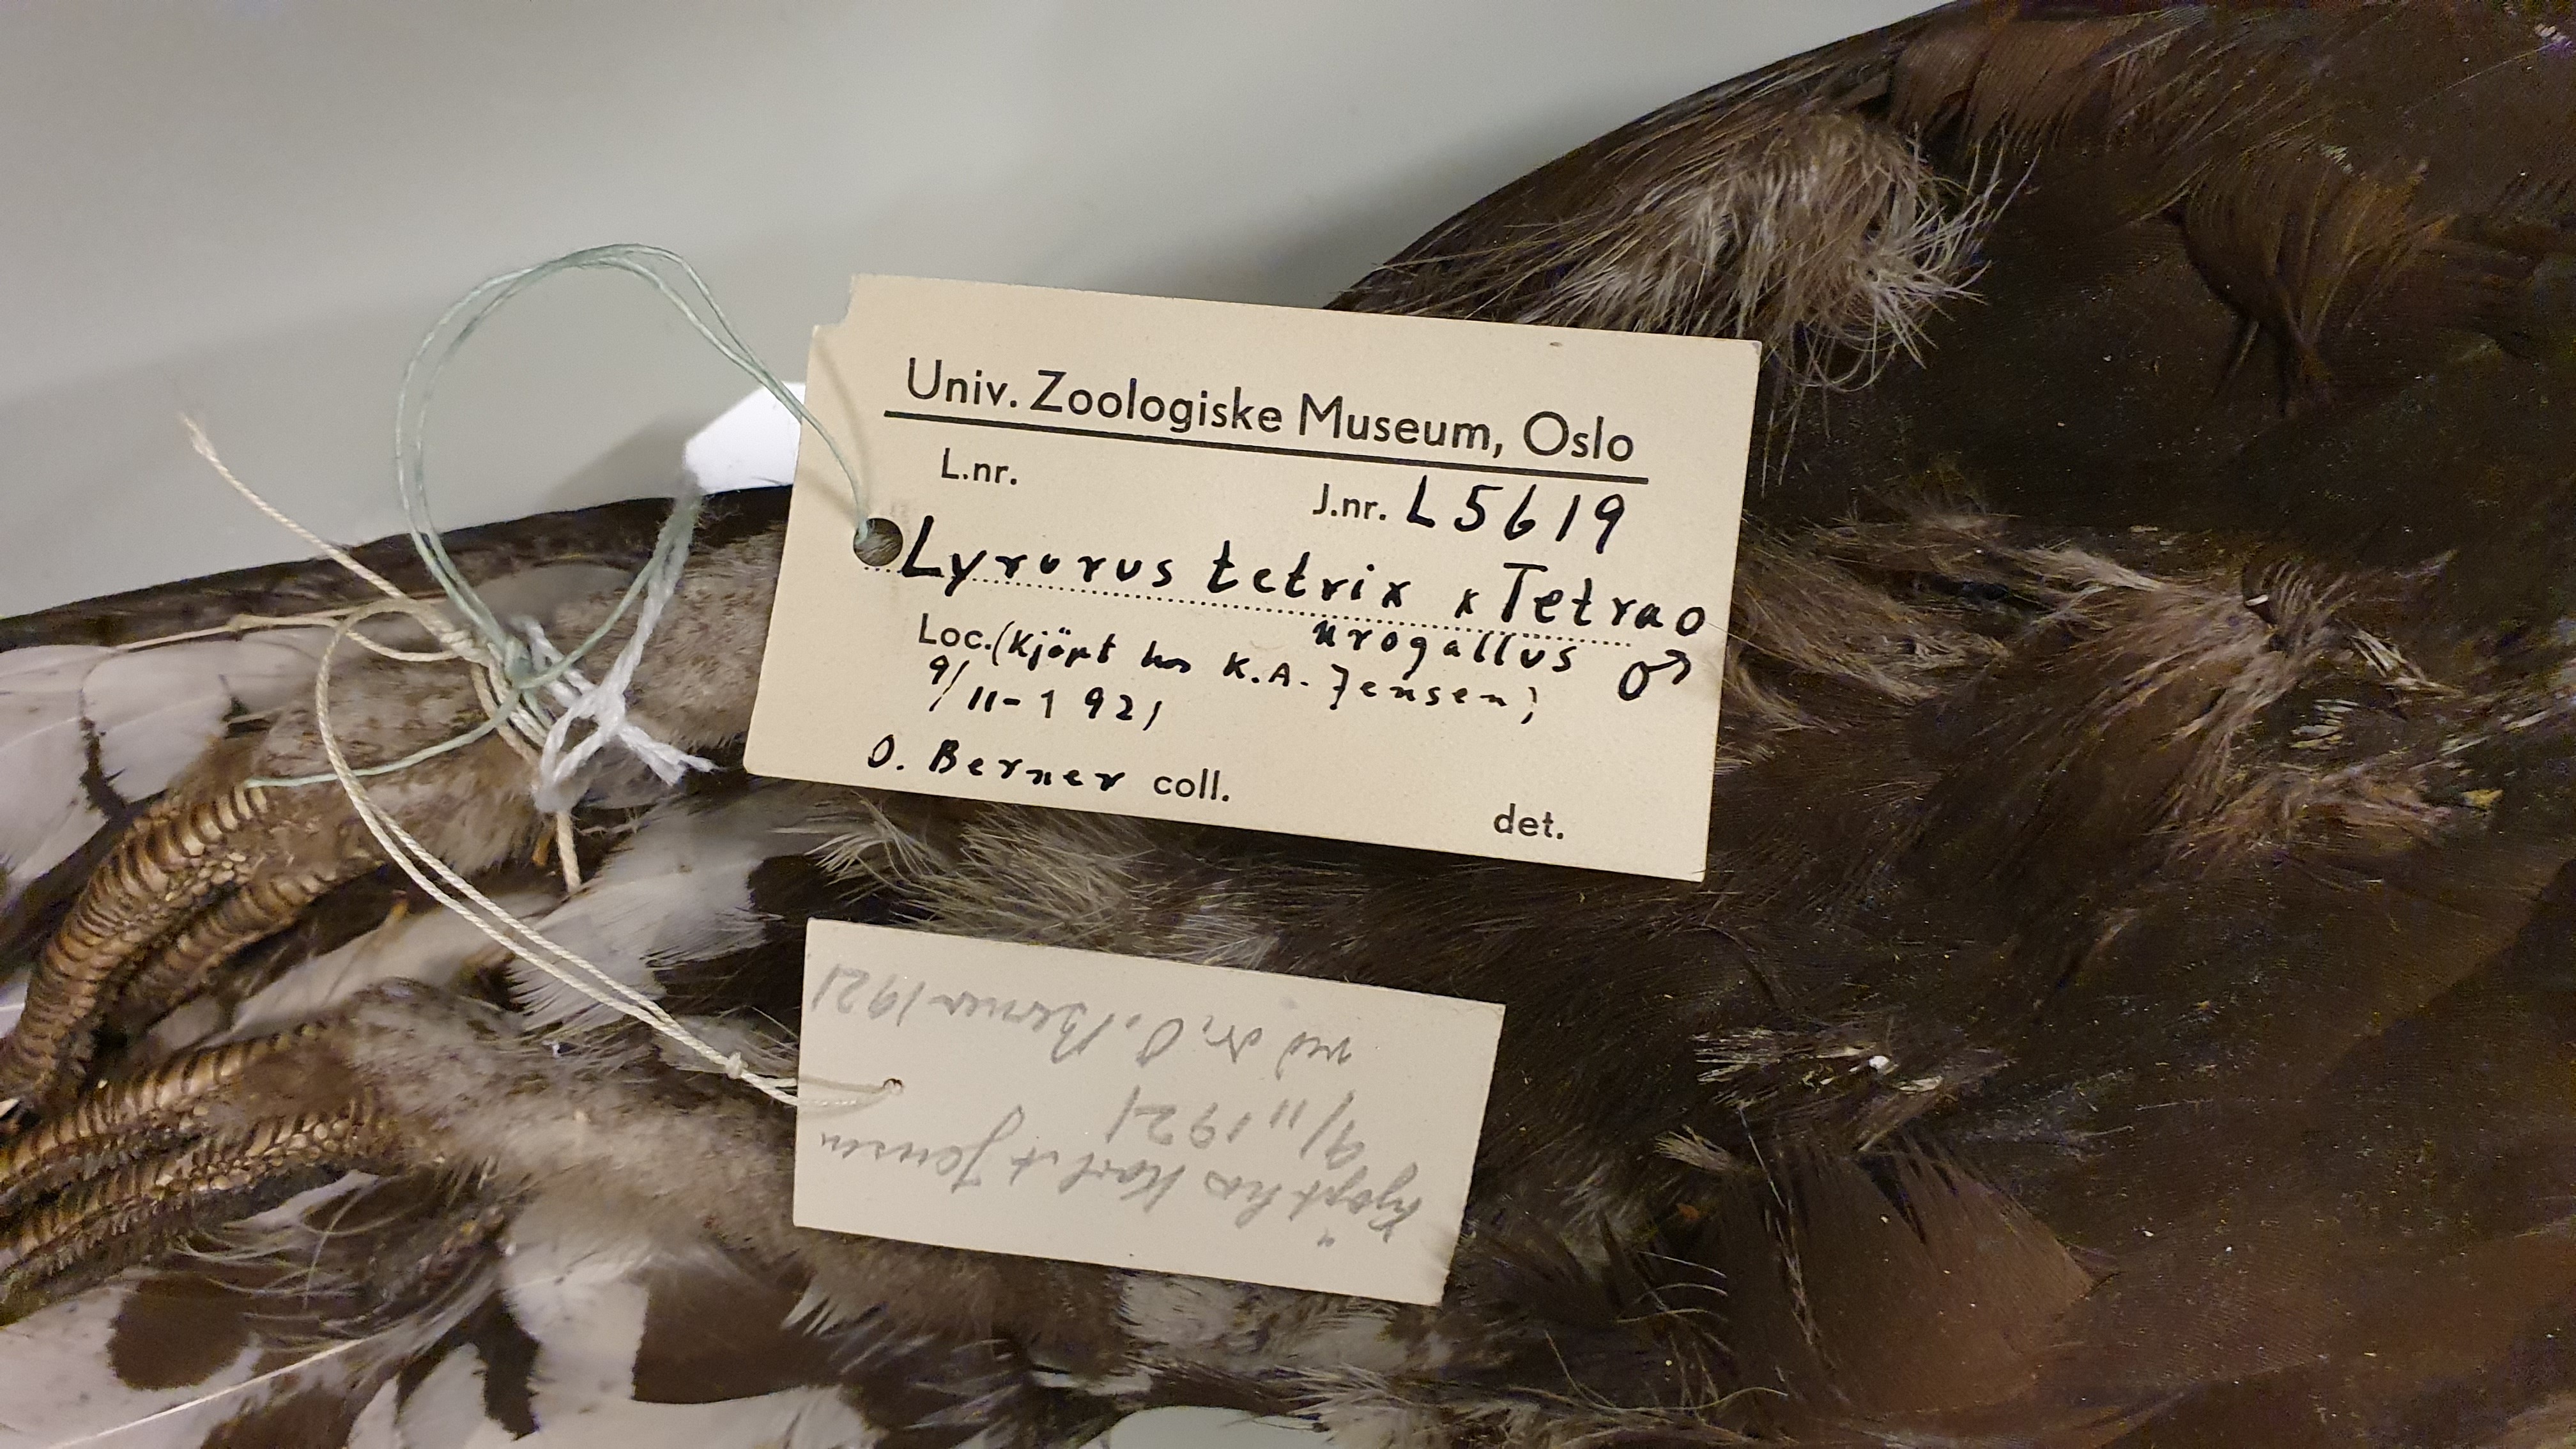 Univ. Zoologiske Museum, Oslo
L.nr. J.nr. L5619
Lyrurus tetrix x Tetrao
urogallus ♂
Loc. (Kjöpt hos K.A. Jensen)
9/11-1921
O. Berner coll.
det.
Kjöpt hos Karl A Jensen
9/11 1921
ved dr. O. Berner 1921